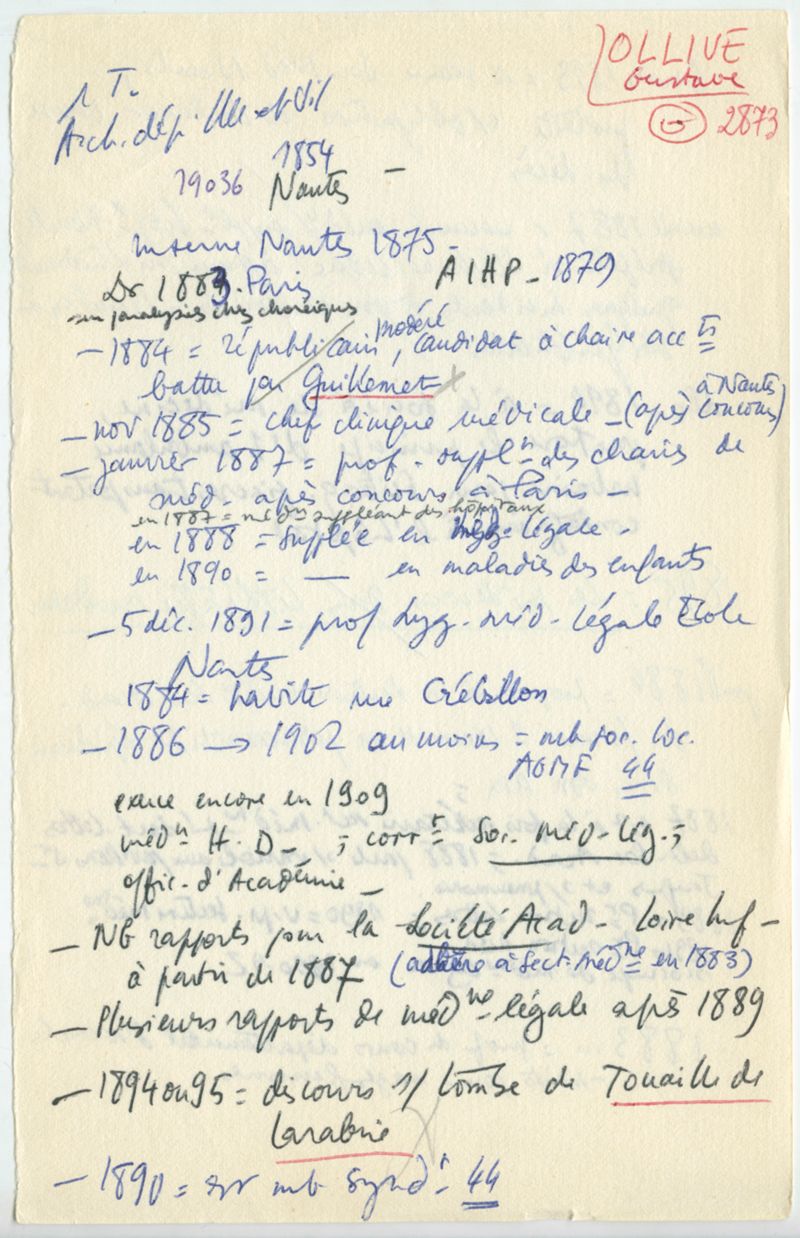 OLLIVE
Gustave
2873
1 T.
Arch. dép. Ille et Vil
1854
19036 Nantes –
interne Nantes 1875 –
Dr 1883 Paris AIHP – 1879
sur paralysies chez choréiques
– 1884 = républicain modéré, candidat à chaire acc ts
battu par Guillemet x
– nov 1885 = chef clinique médicale – (après concours) à Nantes
– janvier 1887 = prof. suppl n des chaires de
méd. après concours à Paris –
en 1887 = méd in suppléant des hôpitaux
en 1888 = supplée en légale –
en 1890 = — en maladies des enfants
– 5 déc. 1891 = prof hyg. méd. légale Ecole
Nantes
1884 = habite rue Crébillon
– 1886 → 1902 au moins = mb soc. loc.
AGMF 44
exerce encore en 1909
méd n H. D – ; corr t Soc. méd. lég. ;
offic. d'Académie –
– Nb rapports pour la Société Acad. Loire Inf –
à partir de 1887 (adhère à sect. méd ne en 1883)
– Plusieurs rapports de méd ne légale après 1889
– 1894 ou 95 = discours s/ tombe de Touaille de
Larabrie
– 1890 = mb synd t 44